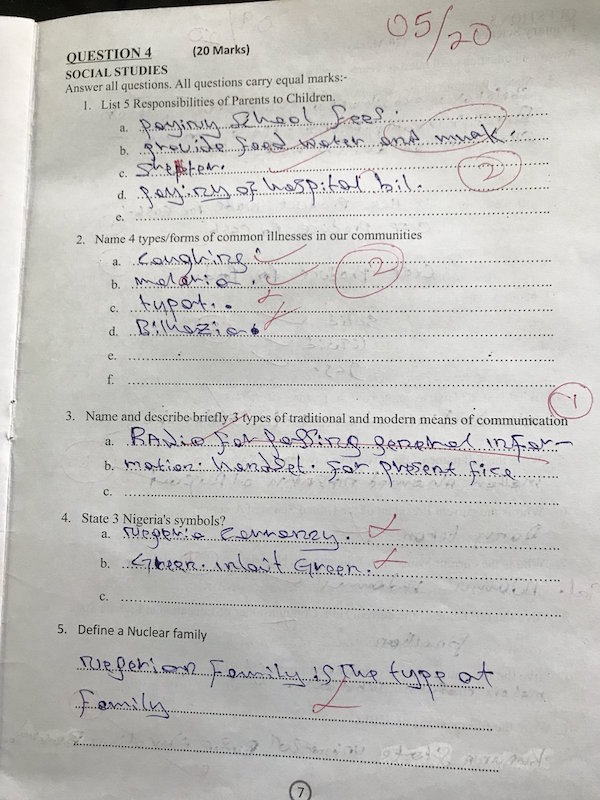 05/20
QUESTION 4 (20 Marks)
SOCIAL STUDIES
Answer all questions. All questions carry equal marks:-
1. List 5 Responsibilities of Parents to Children.
a. paying School fees.
b. provide food water and
c. Shelter.
d. paying of hospital bil.
e.
2
2. Name 4 types/forms of common illnesses in our communities
a. Coughing
b. malaria.
c. typot.
d. Bilhazia
e.
f.
2
1
3. Name and describe briefly 3 types of traditional and modern means of communication
a. RADio for passing general infor-
b. mation. handset. for present
c.
4. State 3 Nigeria's symbols?
a. Negeria
b. Green. Green.
c.
5. Define a Nuclear family
Negerian Family is the type at
family
7